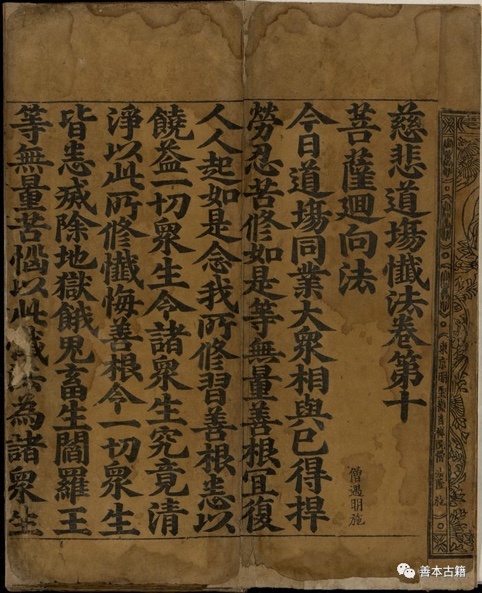 慈悲道塲懺法卷第十
菩薩迴向法
今日道塲同業大衆相與已得捍
勞忍苦修如是等無量善根宜復
人人起如是念我所修習善根悉以
饒益一切衆生令諸衆生究竟清
淨以此所修懺悔善根令一切衆生
皆悉滅除地獄餓鬼畜生閻羅王
等無量苦惱以此懺法為諸衆生
僧遇明施
善本古籍